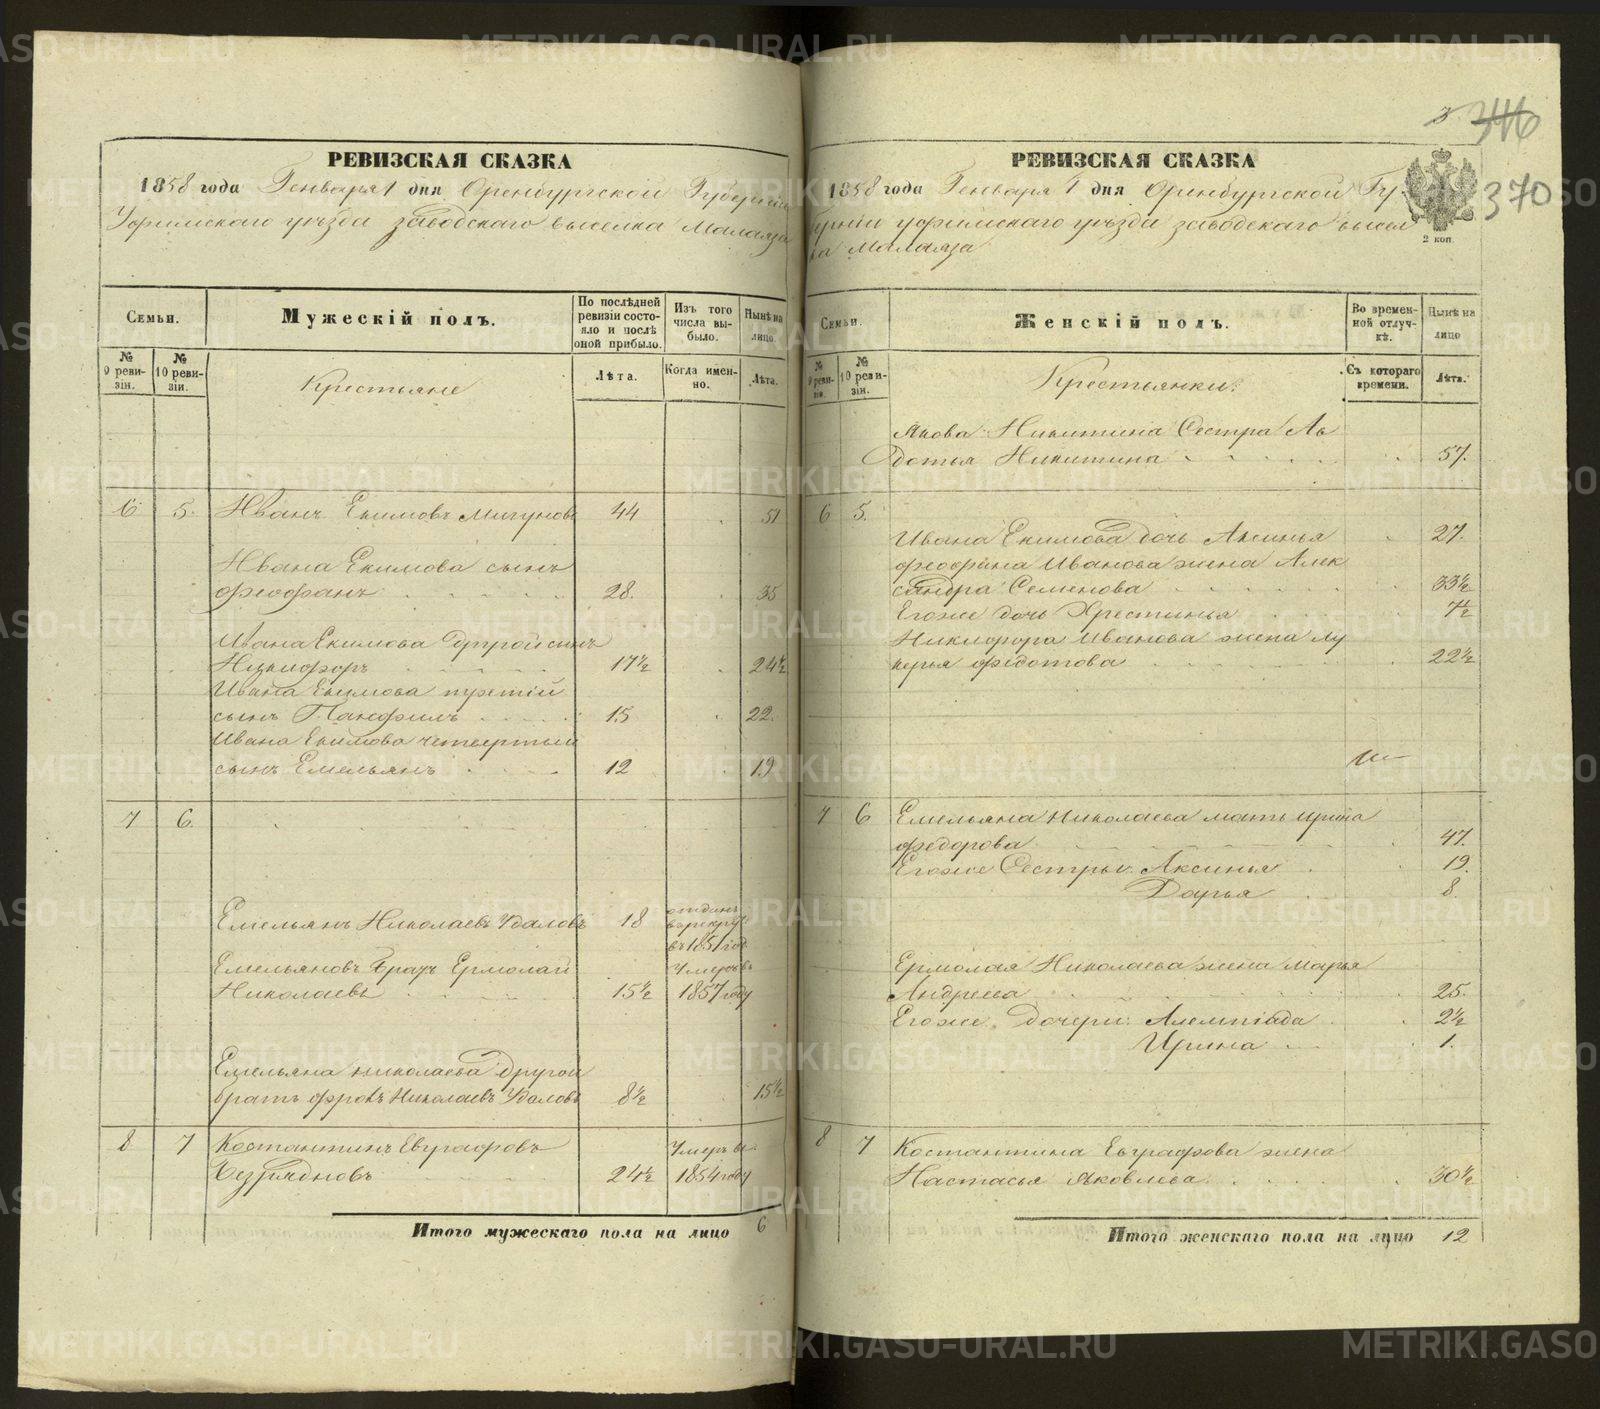 РЕВИЗСКАЯ СКАЗКА
1858 года Генваря 1 дня Оренбургской Губерніи
Уфимскаго уѣзда заводскаго выселка Малаяза
Семьи.
Мужескій полъ.
По послѣдней ревизіи состояло и послѣ оной прибыло.
Изъ того числа выбыло.
Нынѣ на лицо.
№ 9 ревизіи.
№ 10 ревизіи.
Крестьяне
Лѣта.
Когда именно.
Лѣта.
6 5. Иванъ Екимовъ Мигуновъ 44 51
Ивана Екимова сынъ
Феофанъ 28. 35
Ивана Екимова другой сынъ
Никифоръ 17½ 24½
Ивана Екимова третій
сынъ Панфилъ 15 22.
Ивана Екимова четвертый
сынъ Емельянъ 12 19
7 6.
Емельянъ Николаевъ Удаловъ 18 отданъ
въ рекру
въ 1851 год
Емельяновъ братъ Ермолай Умеръ въ
Николаевъ 15½ 1857 году
Емельяна Николаева другой
братъ Фролъ Николаевъ Удаловъ 8½ 15½
8 7 Костантинъ Евграфовъ Умеръ въ
24½ 1854 году
Итого мужескаго пола на лицо 6
3 346
370
РЕВИЗСКАЯ СКАЗКА
1858 года Генваря 1 дня Оренбургской Гу-
берніи уфимскаго уѣзда заводскаго высел
ка Малаяза
2 коп.
Семьи.
Женскій полъ.
Во временной отлучкѣ.
Нынѣ на лицо
№ 9 ревизіи.
№ 10 ревизіи.
Крестьянки.
Съ котораго времени.
Лѣта.
Якова Никитина Сестра Ав
дотья Никитина 57.
6 5.
Ивана Екимова дочь Аксинья 27.
Феофана Иванова жена Алек
сандра Семенова 33½
Егоже дочь Хрестинья 7½
Никифора Иванова жена Лу
керья Федотова 22½
7 6 Емельяна Николаева мать Ирина
Федорова 47.
Егоже Сестры Аксинья 19.
Дарья 8.
Ермолая Николаева жена Марья
Андреева 25.
Егоже дочери Алемпіада 2½
Ирина 1.
8 7 Костантина Евграфова жена
Настасья Яковлева 30½
Итого женскаго пола на лицо 12
METRIKI.GASO-URAL.RU